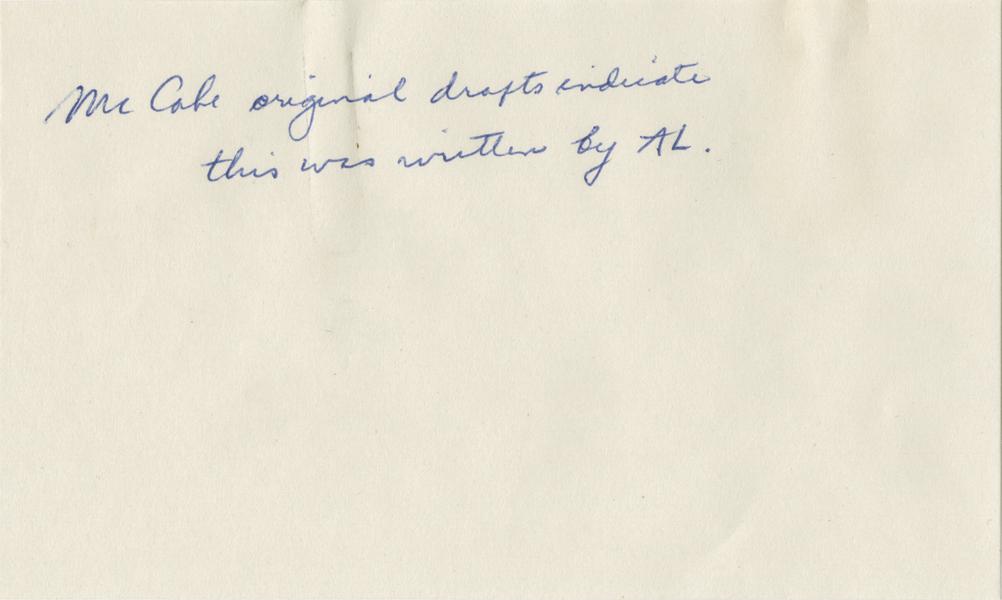 Mc Cabe original drafts indicate
this was written by AL.